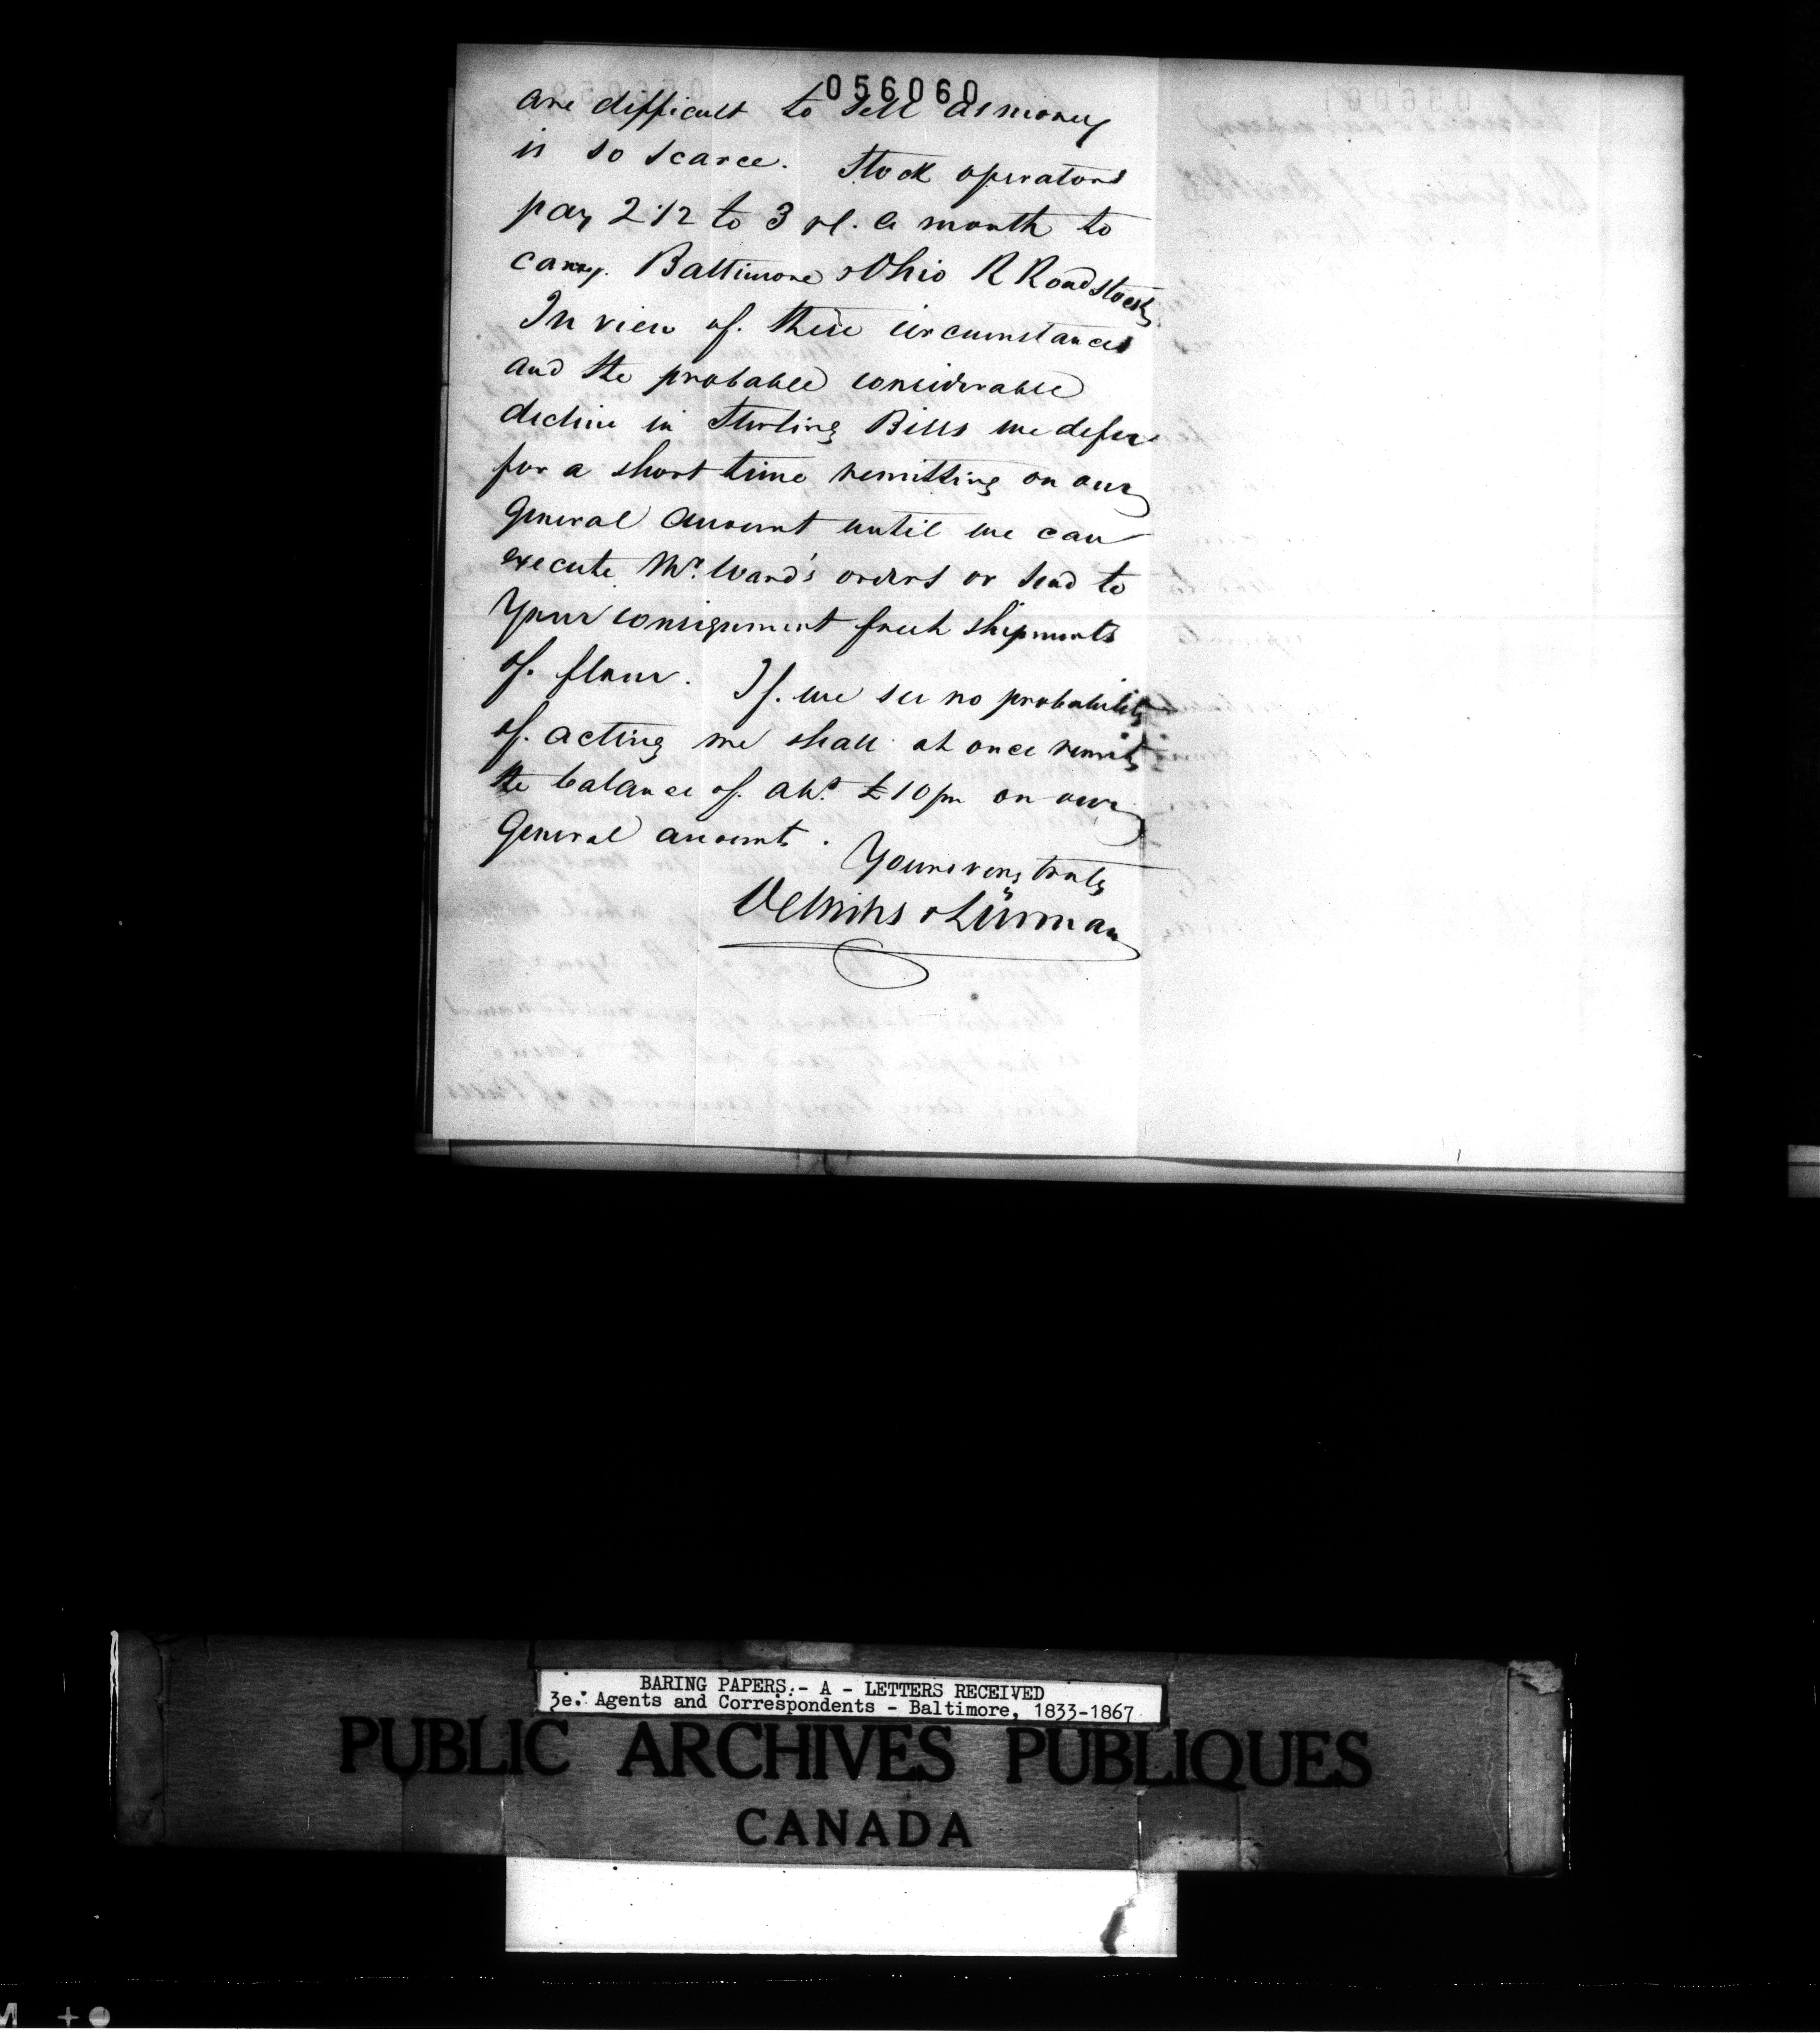 056060
are difficult to sell as money
is so scarce. Stock operators
pay 2 1/2 to 3 pc. a month to
carry Baltimore & Ohio R Road Stock,
In view of these circumstances
and the probable considerable
decline in Sterling Bills we defer
for a short time remitting on our
General account until we can
execute Mr. Ward's orders or send to
Your consignment fresh shipments
of flour. If we see no probability
of acting we shall at once remit
the balance of abt. £10/m on our
General account.
Yours very truly
Oelrichs & Lürman
BARING PAPERS.- A - LETTERS RECEIVED
3e. Agents and Correspondents - Baltimore, 1833-1867
PUBLIC ARCHIVES PUBLIQUES
CANADA